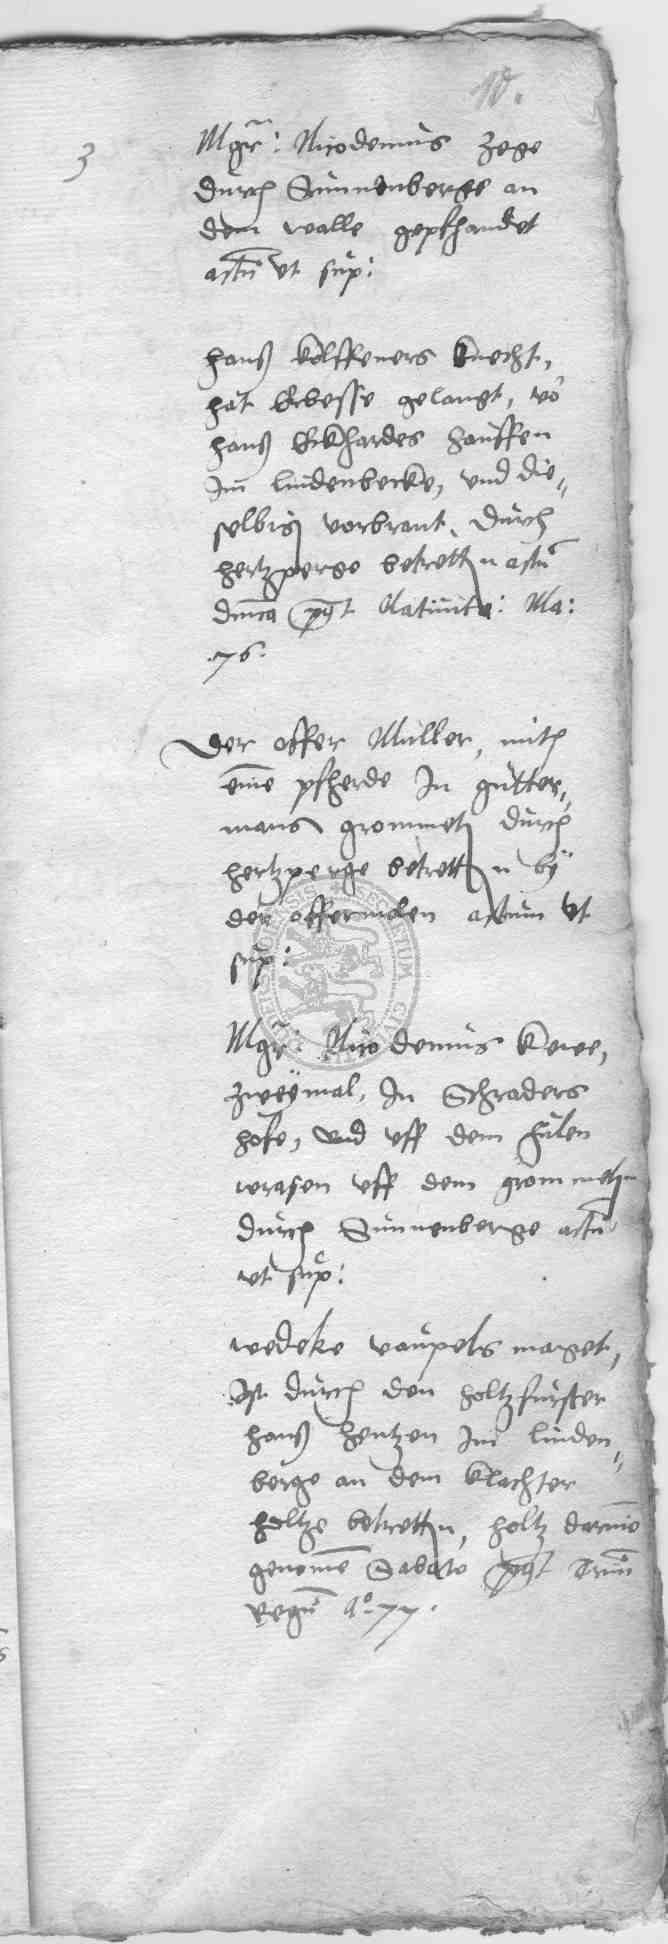 10.
3
Mgr: Nicodemus Zege
durch Sunnenberge an
dem walle gepfhandet
actu ut sup:
hanß kolffeners knecht,
hat Erbesse gelangt, vo
hanß Eckhardes hauffen
Im lindenbecke, vnd die„
selbig vorbrant, durch
hertzperge betretten actu
dmca post Natiuita: Ma:
.76.
Der offer Müller, mith
eine pfherde In gutter„
mans grommet durch
hertzperge betretten by
der offermolen actum ut
sup:
Mgr: Nicodemus kewe,
zweymal, In Schraders
hofe, vnd vff dem fulen
wrasen vff dem grommeth
durch Sunnenberge actu
ut sup:
wedeke vaupels marget,
Ist durch den holtzfurster
hanß hentzen Im linden„
berge an dem klachter
holtze betretten, holtz darvme
genome Sabato post Trium
Regu Ao. 77.